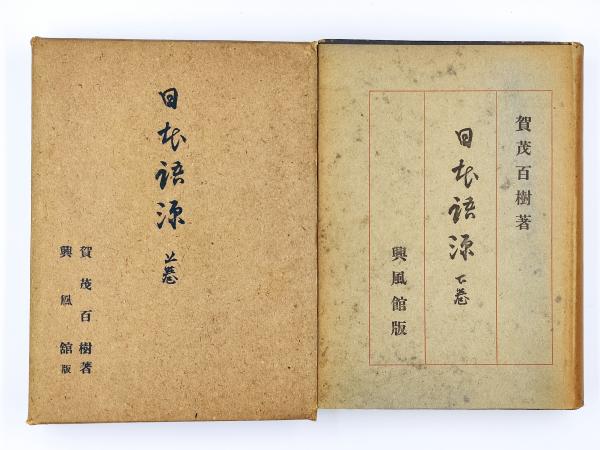 日本語源 上巻
賀茂百樹著
興風館版
賀茂百樹著
日本語源 下巻
興風館版